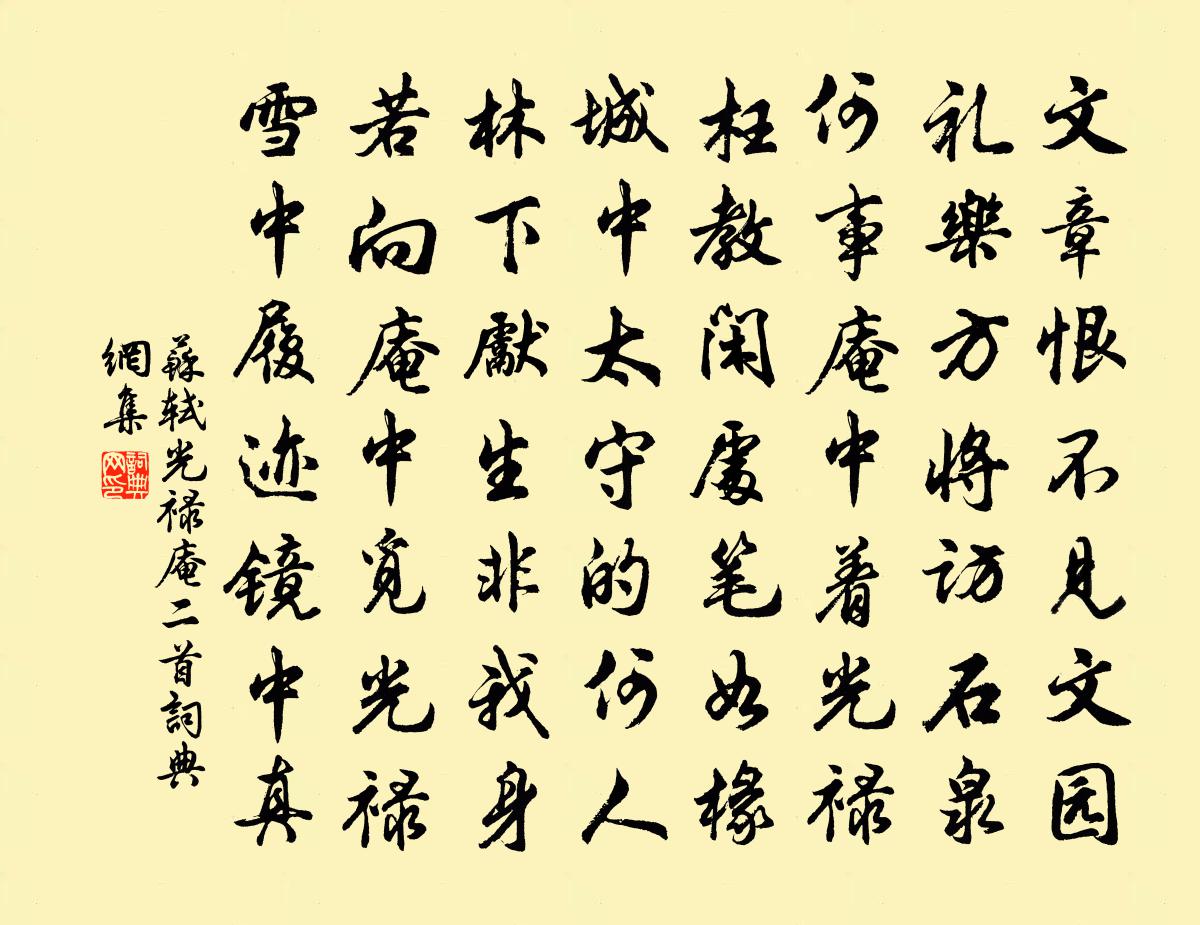 文章恨不见文园
礼樂方将訪石泉
何事庵中着光禄
枉教闲處笔如椽
城中太守的何人
林下獻生非我身
若向庵中觅光禄
雪中履迹镜中真
蘇轼光禄庵二首詞典
網集
詞典
网印